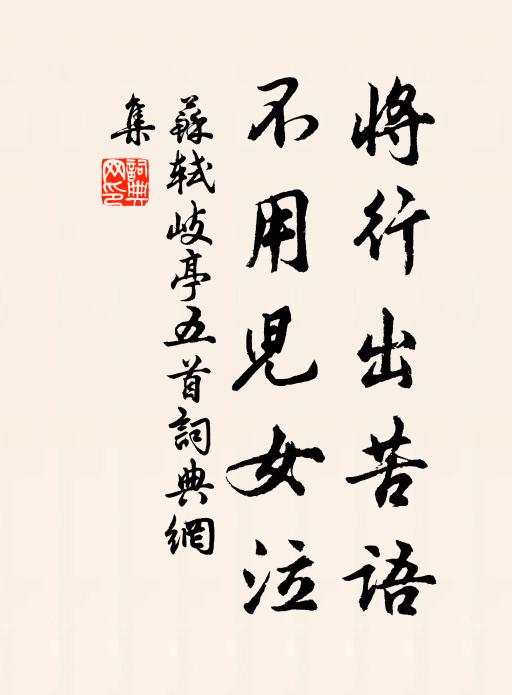 將行出苦語
不用兒女泣
蘇軾岐亭五首詞典網
集
詞典
网印